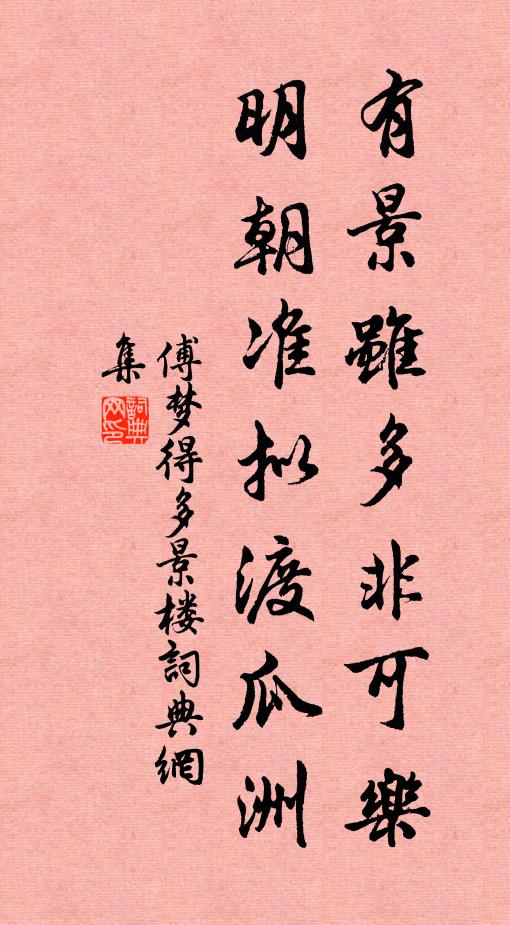 有景雖多非可樂
明朝准拟渡瓜洲
傅梦得多景楼詞典網
集
詞典
网印